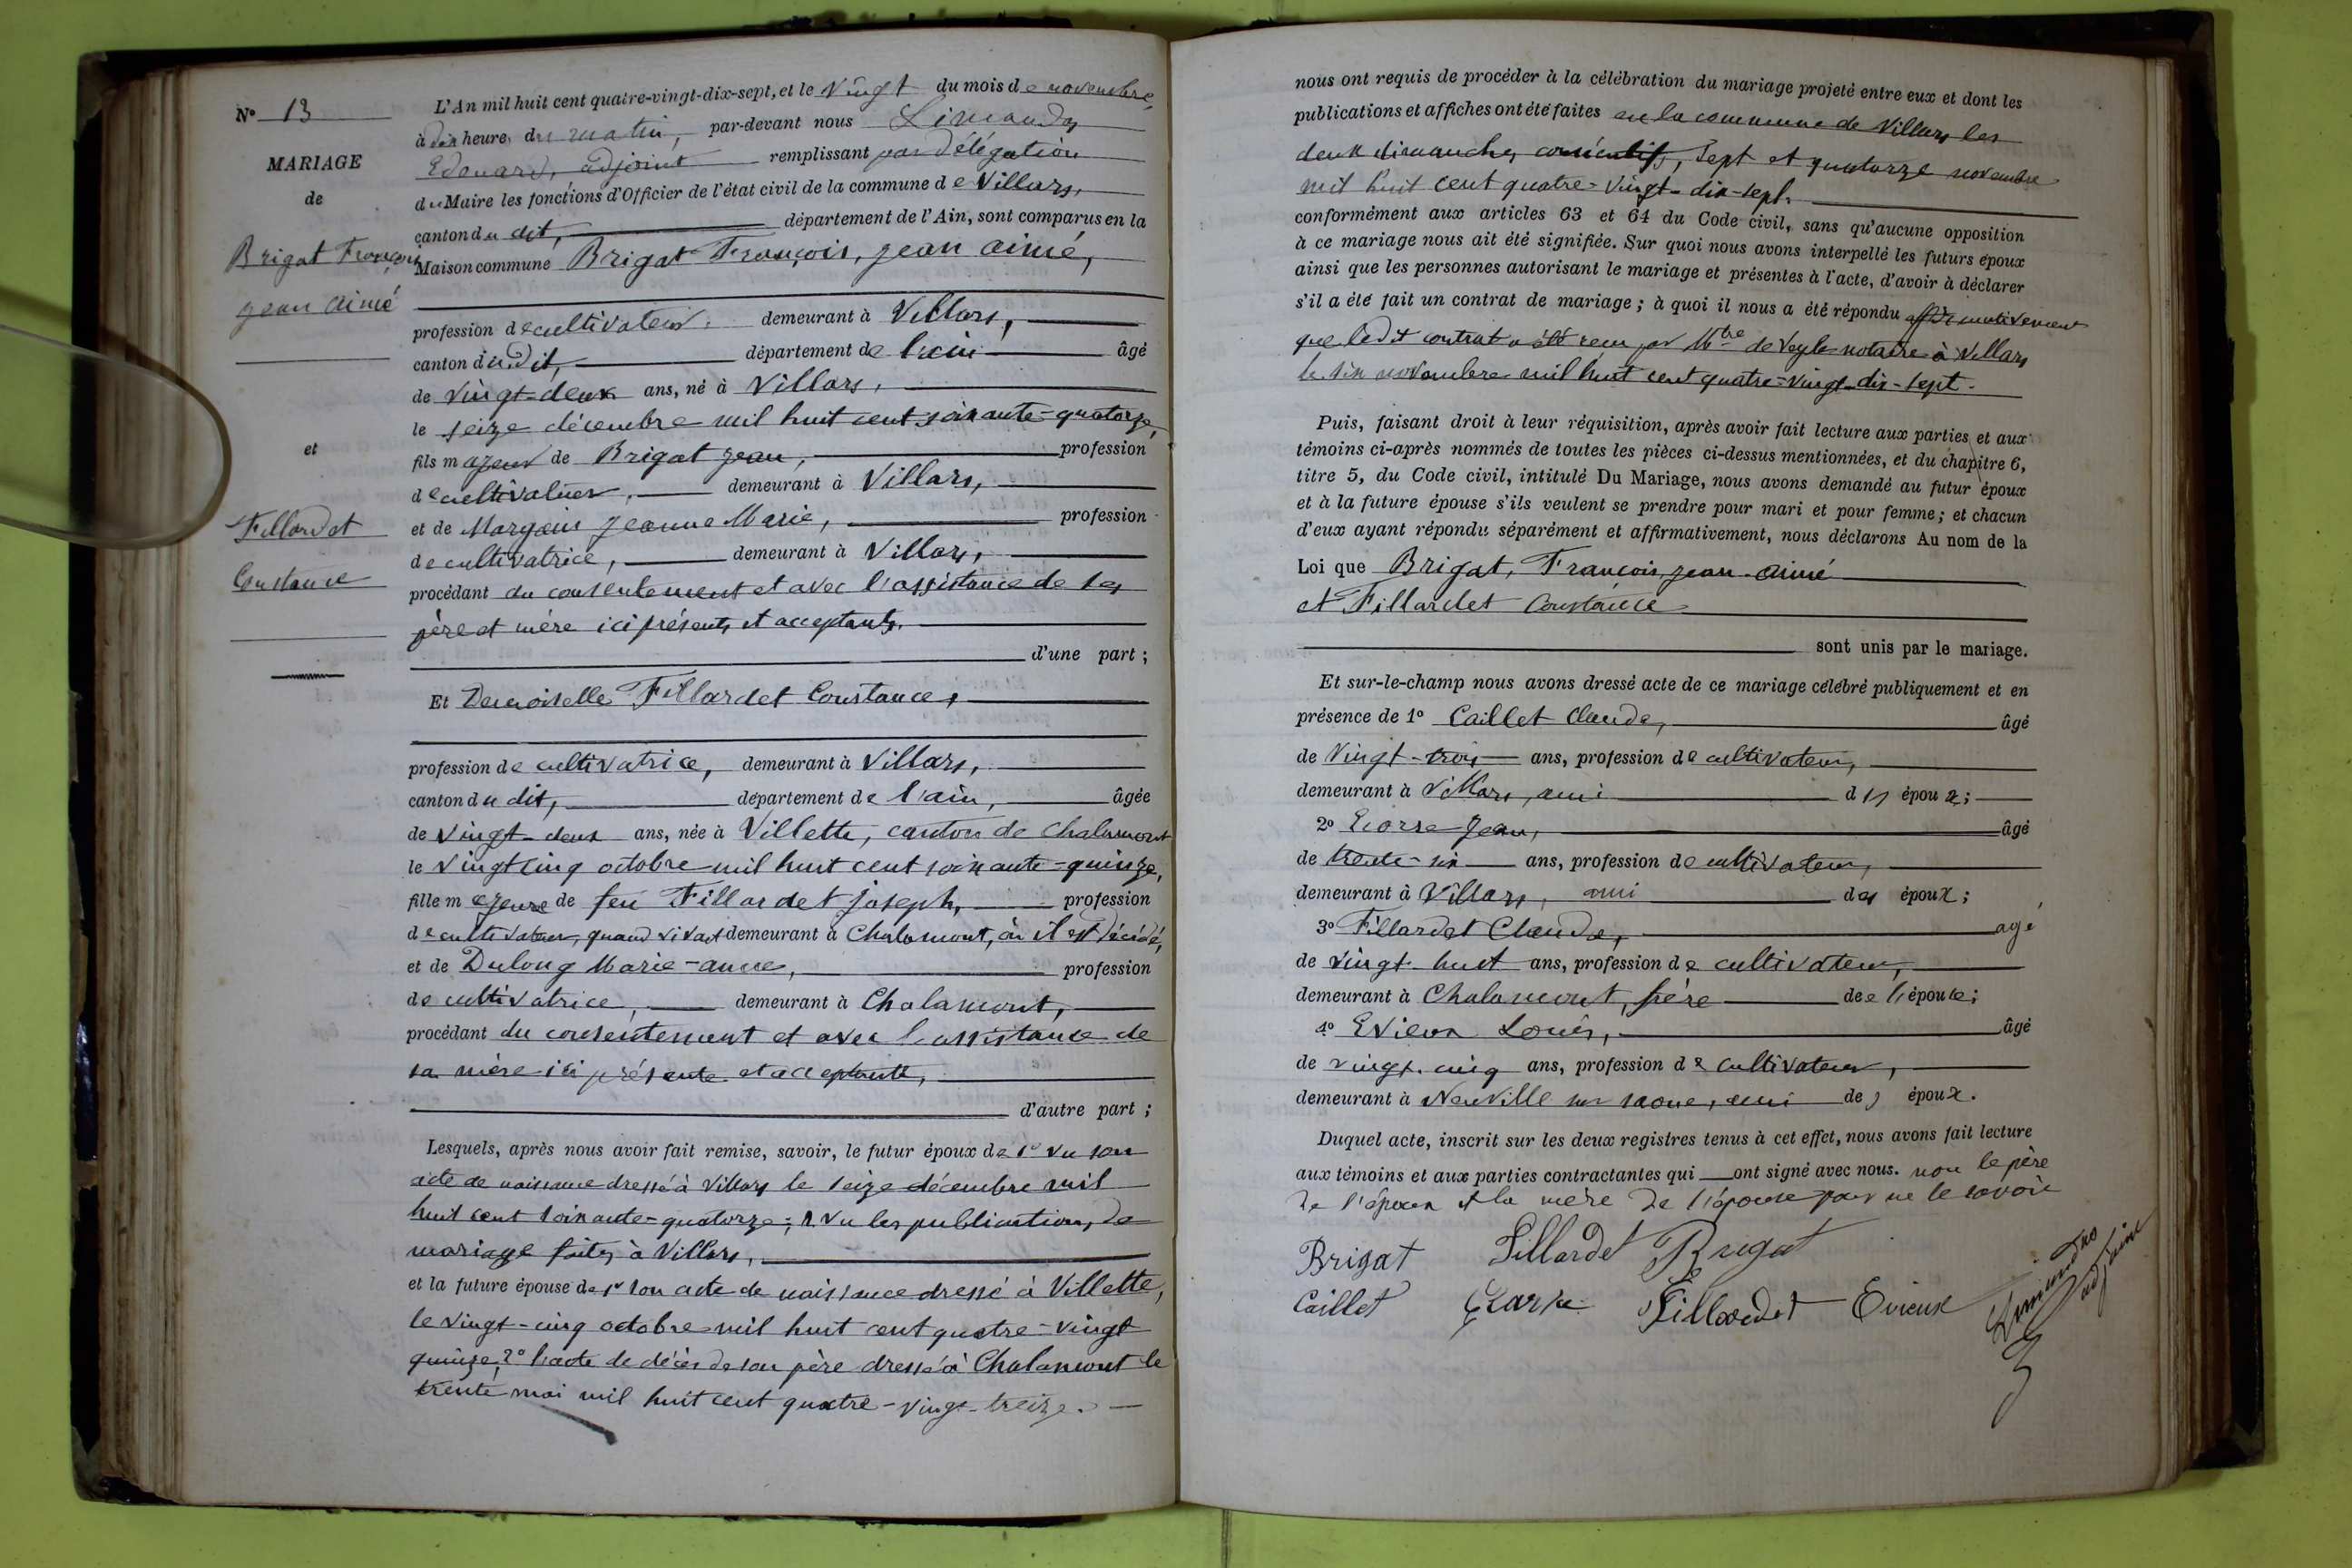 Nº 13
MARIAGE
de
Brigat François
jean aimé
et
Fillardet
Constance
L'An mil huit cent quatre-vingt-dix-sept, et le vingt du mois de novembre,
à dix heures du matin, par-devant nous Limandas
Edouard, adjoint remplissant par délégation
du Maire les fonctions d'Officier de l'état civil de la commune de Villars,
canton du dit, département de l'Ain, sont comparus en la
Maison commune Brigat François, jean aimé,
profession de cultivateur, demeurant à Villars,
canton du Dit, département de l'ain âgé
de vingt-deux ans, né à Villars,
le seize décembre mil huit cent soixante-quatorze,
fils majeur de Brigat jean, profession
de cultivateur, demeurant à Villars,
et de Margain jeanne Marie, profession
de cultivatrice, demeurant à Villars,
procédant du consentement et avec l'assistance de ses
père et mère ici présents et acceptants.
d'une part ;
Et Demoiselle Fillardet Constance,
profession de cultivatrice, demeurant à Villars,
canton du dit, département de l'ain, âgée
de vingt-deux ans, née à Villette, canton de Chalamont
le vingt cinq octobre mil huit cent soixante-quinze,
fille majeure de feu Fillardet joseph, profession
de cultivateur, quand vivait demeurant à Chalamont, où il est décédé,
et de Dulong Marie-anne, profession
de cultivatrice, demeurant à Chalamont,
procédant du consentement et avec l'assistance de
sa mère ici présente et acceptante,
d'autre part ;
Lesquels, après nous avoir fait remise, savoir, le futur époux de 1º vu son
acte de naissance dressé à Villars le seize décembre mil
huit cent soixante-quatorze; 2 vu les publications de
mariage faites à Villars,
et la future épouse de 1º son acte de naissance dressé à Villette,
le vingt-cinq octobre mil huit cent quatre-vingt
quinze, 2º l'acte de décès de son père dressé à Chalamont le
trente mai mil huit cent quatre-vingt-treize.
nous ont requis de procéder à la célébration du mariage projeté entre eux et dont les
publications et affiches ont été faites en la commune de Villars les
deux dimanches consécutifs, sept et quatorze novembre
mil huit cent quatre-vingt-dix-sept.
conformément aux articles 63 et 64 du Code civil, sans qu'aucune opposition
à ce mariage nous ait été signifiée. Sur quoi nous avons interpellé les futurs époux
ainsi que les personnes autorisant le mariage et présentes à l'acte, d'avoir à déclarer
s'il a été fait un contrat de mariage ; à quoi il nous a été répondu affirmativement
que ledit contrat a été reçu par Mtre de Veyle notaire à Villars
le six novembre mil huit cent quatre-vingt-dix-sept.
Puis, faisant droit à leur réquisition, après avoir fait lecture aux parties et aux
témoins ci-après nommés de toutes les pièces ci-dessus mentionnées, et du chapitre 6,
titre 5, du Code civil, intitulé Du Mariage, nous avons demandé au futur époux
et à la future épouse s'ils veulent se prendre pour mari et pour femme ; et chacun
d'eux ayant répondu séparément et affirmativement, nous déclarons Au nom de la
Loi que Brigat, François, jean-aimé
et Fillardet Constance
sont unis par le mariage.
Et sur-le-champ nous avons dressé acte de ce mariage célébré publiquement et en
présence de 1º Caillet Claude, âgé
de vingt-trois ans, profession de cultivateur,
demeurant à Villars, ami des époux ;
2º jean, âgé
de trente-six ans, profession de cultivateur,
demeurant à Villars, ami des époux ;
3º Fillardet Claude, agé
de vingt-huit ans, profession de cultivateur,
demeurant à Chalamont, frère de l'épouse ;
4º Evieux Louis, âgé
de vingt-cinq ans, profession de cultivateur,
demeurant à Neuville sur saone, ami des époux.
Duquel acte, inscrit sur les deux registres tenus à cet effet, nous avons fait lecture
aux témoins et aux parties contractantes qui ont signé avec nous. non le père
de l'époux et la mère de l'épouse pour ne le savoir
Brigat Fillardet Brigat
Caillet Fillardet Evieux Limandas adjoint